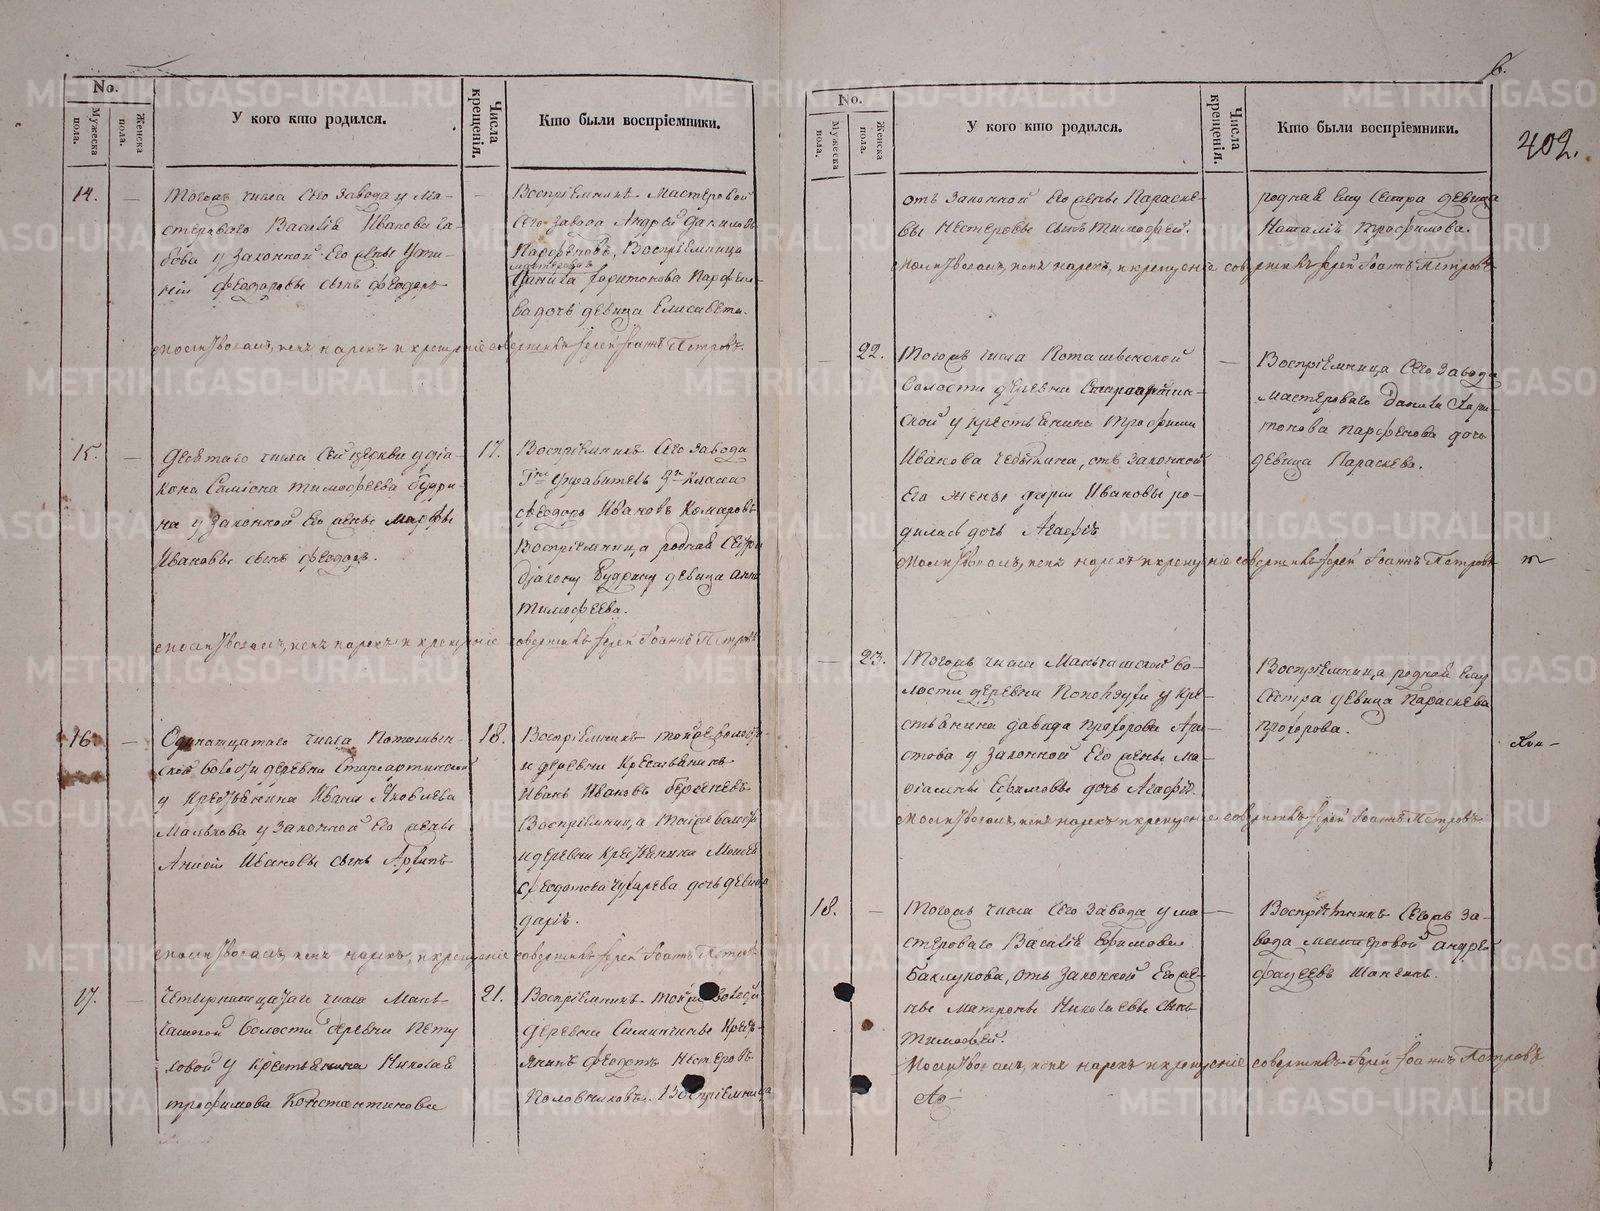 No.
Мужеска пола.
Женска пола.
У кого кто родился.
Числа крещенія.
Кто были воспріемники.
14.
Тогожъ числа Сего Завода у Ма-
стероваго Василія Иванова
у законной Его жены
Феодоровы сынъ Феодоръ
Воспріемникъ Мастеровой
Сего Завода Андрей Даниловъ
Парфеновъ, Воспріемница
мастероваго
Данила Харитонова Парфено-
ва дочь девица Елисавета.
молитвовалъ, имя нарекъ и крещеніе совершилъ Іерей Іоаннъ Петровъ.
15.
Девятаго числа Сей церкви у діа-
кона Самсона Тимофеева Будри-
на у законной Его жены Марфы
Ивановы сынъ Феодоръ.
17.
Воспріемникъ Сего Завода
Г. Управитель 9 класса
Феодоръ Ивановъ Комаровъ
Воспріемница родная Сестра
діакону Будрину девица Анна
Тимофеева.
молитвовалъ, имя нарекъ и крещеніе совершилъ Іерей Іоаннъ Петровъ
16.
Одинатцатаго числа Поташин-
ской волости деревни Староартинской
у Крестьянина Ивана Яковлева
Малькова у законной Его жены
Анисіи Ивановы сынъ Архипъ
18.
Воспріемникъ тойже волости
и деревни Крестьянинъ
Иванъ Ивановъ Берсеневъ
Воспріемница тойже волости
и деревни крестьянина Моисея
Феодотова дочь девица
Дарія.
молитвовалъ, имя нарекъ, и крещеніе совершилъ Іерей Іоаннъ Петровъ
17.
Четырнатцатаго числа Манчажской
волости деревни Пету-
ховой у Крестьянина Николая
Трофимова Константинова
21.
Воспріемникъ тойже волости
деревни Симинчины Кресть-
янинъ Феодотъ Нестеровъ
Половниковъ. Воспріемница
6.
402.
No.
Мужеска пола.
Женска пола.
У кого кто родился.
Числа крещенія.
Кто были воспріемники.
отъ Законной Его жены Параске-
вы Нестеровы сынъ Тимофей.
родная ему Сестра девица
Наталія Трофимова.
молитвовалъ, имя нарекъ, и крещеніе совершилъ Іерей Іоаннъ Петровъ
22.
Тогожъ числа Поташинской
волости деревни Староартин-
ской у крестьянина Трофима
Иванова Чебыкина, отъ Законной
Его жены Дарьи Ивановы ро-
дилась дочь Агафія
Воспріемница Сего Завода
мастероваго Данила Хари-
тонова Парфенова дочь
девица Параскева.
молитвовалъ, имя нарекъ и крещеніе совершилъ Іерей Іоаннъ Петровъ
23.
Тогожъ числа Манчажской во-
лости деревни у кре-
стьянина Давида Прохорова Ари-
стова у законной Его жены Ма-
Ефимовы дочь Агафія.
Воспріемница родная ему
Сестра девица Параскева
Прохорова.
молитвовалъ, имя нарекъ и крещеніе совершилъ Іерей Іоаннъ Петровъ
18.
Тогожъ числа Сего Завода у ма-
стероваго Василія Ефимова
Баклунова, отъ законной Его же-
ны Матроны Николаевы сынъ
Тимофей.
Воспріемникъ Сегожъ За-
вода мастеровой Андрей
Фадеевъ Шангинъ.
молитвовалъ, имя нарекъ и крещеніе совершилъ Іерей Іоаннъ Петровъ
METRIKI.GASO-URAL.RU